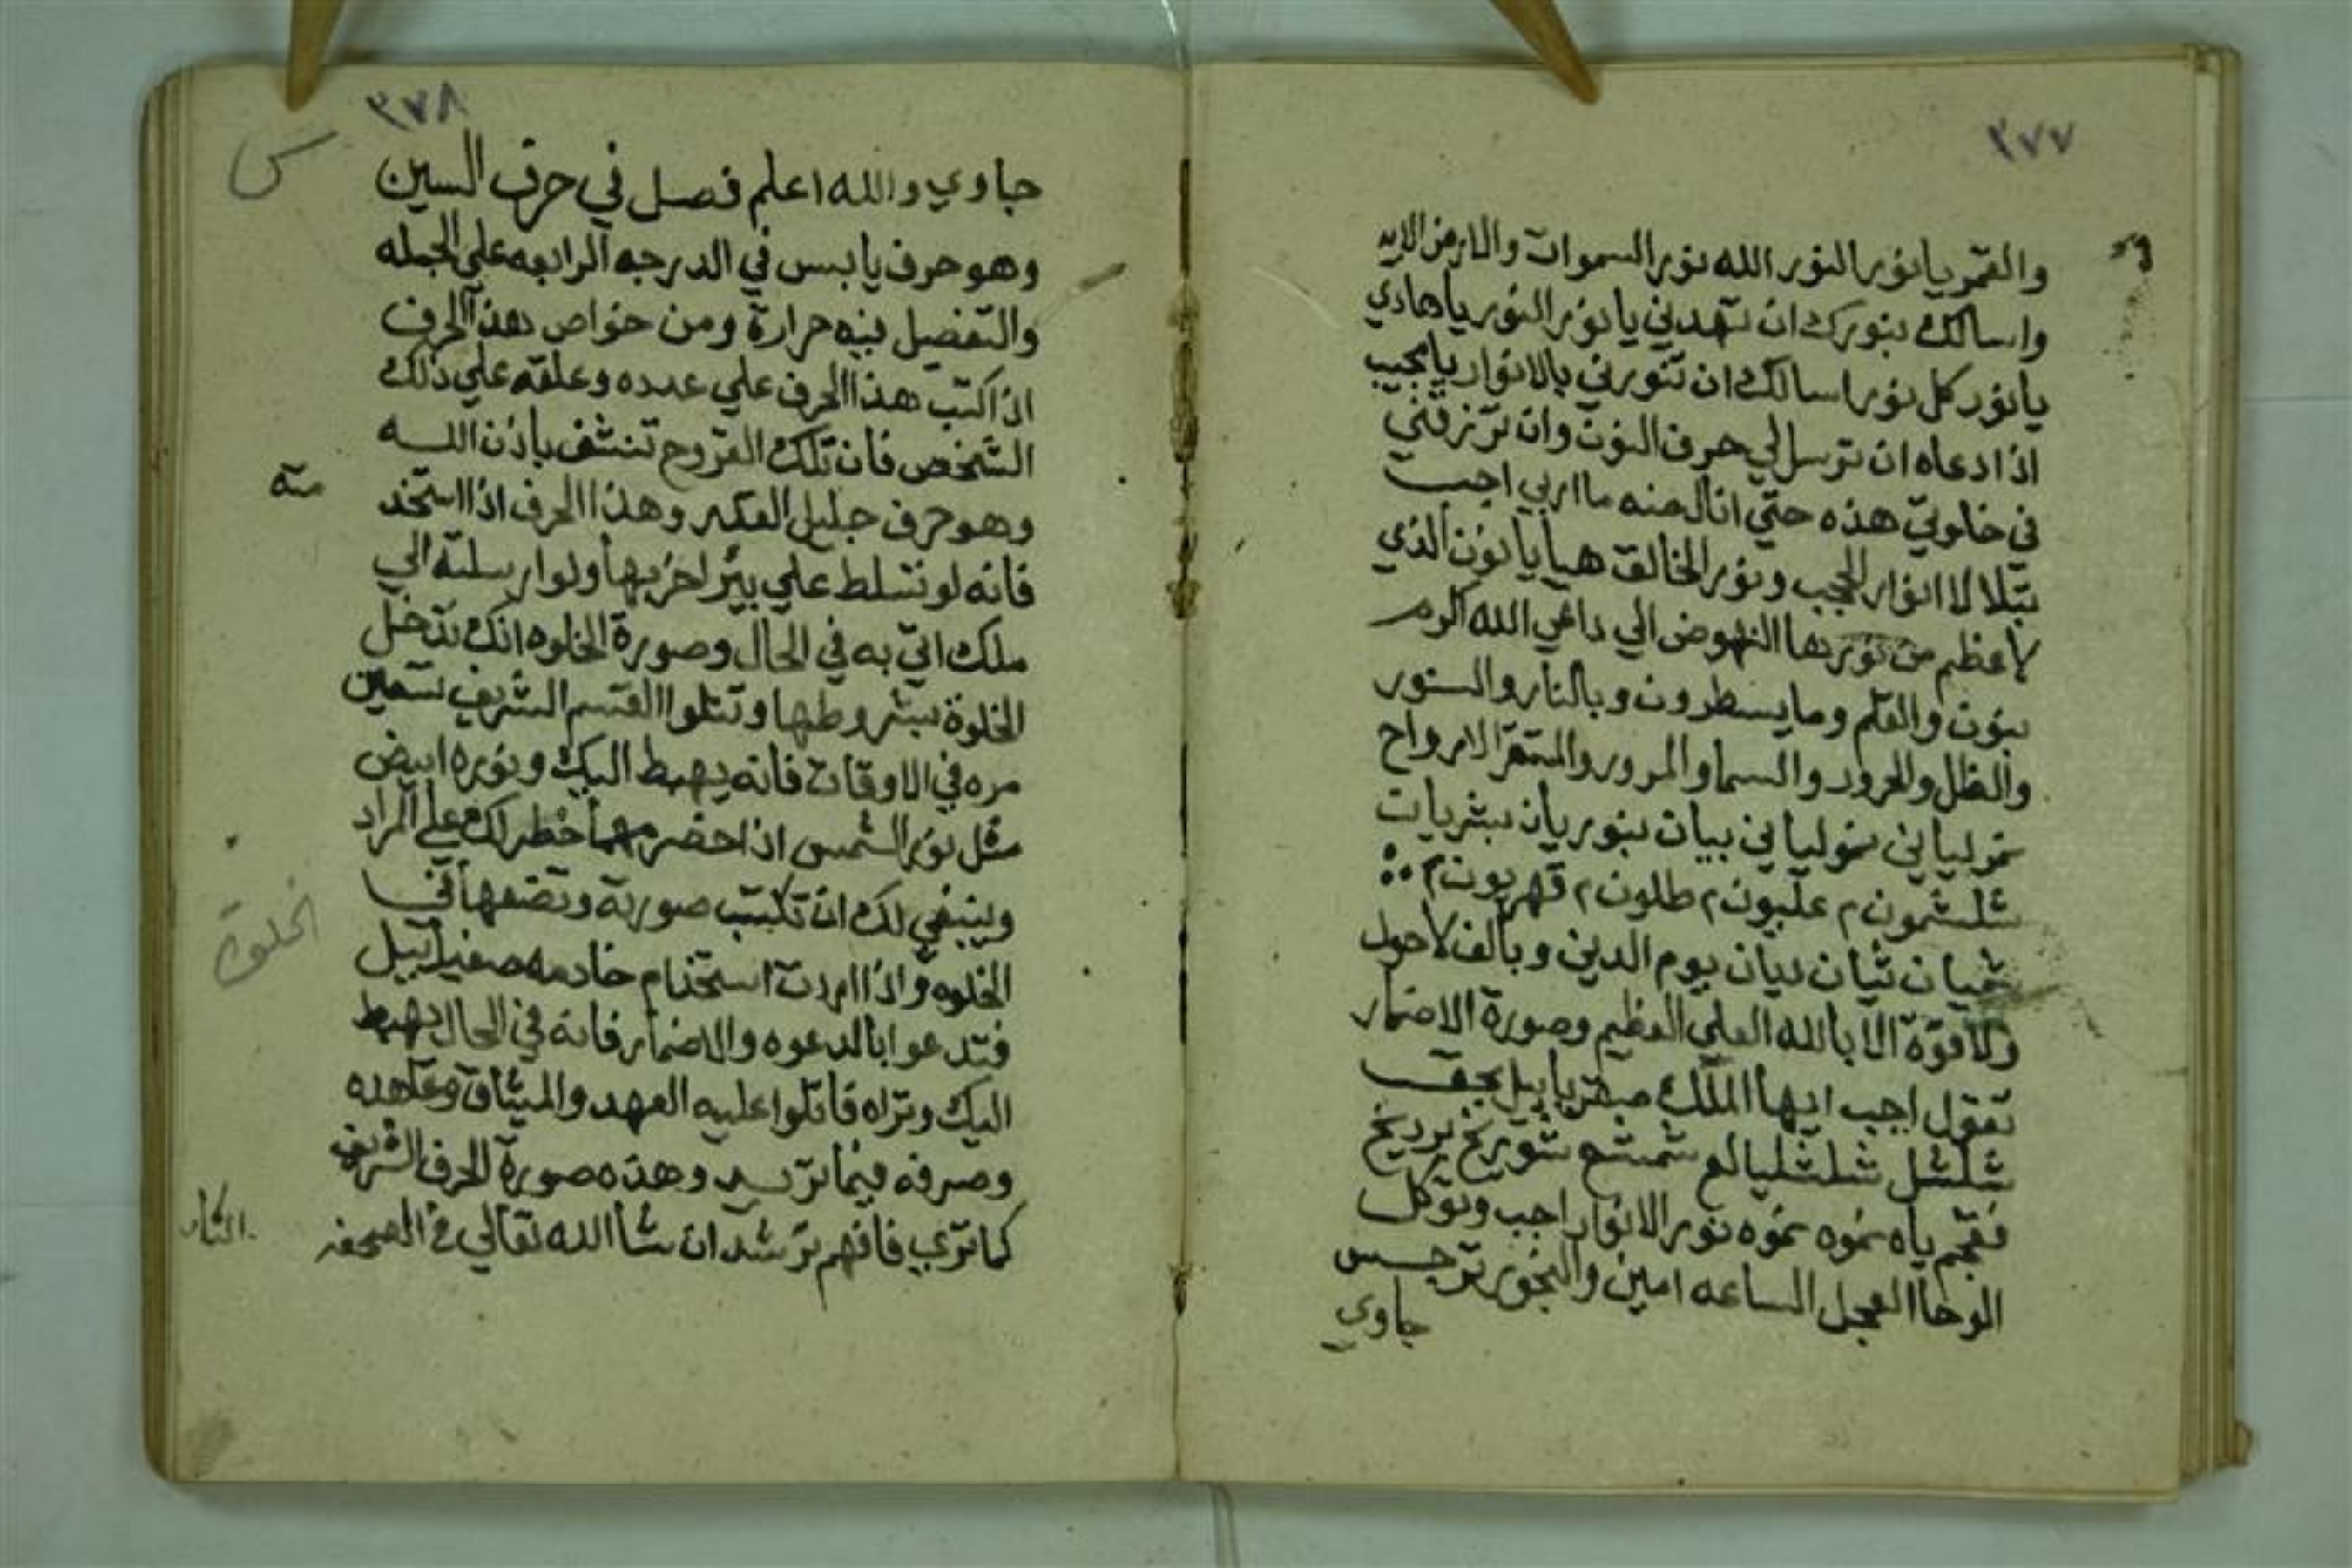 ٣٧٧
والقمر يا نور النور الله نور السموات والارض الايه
واسالك بنورك ان تهدني يا نور النور يا هادي
يا نور كل نور اسالك ان تنورني بالانوار يا مجيب
اذا دعاه ان ترسل لي حرف النون وان ترزقني
في خلوتي هذه حتي انال منه ما اربي اجب
بتلالا انوار الحجب ونور الخالق هيا يا نون الذي
لاعظم من نورها النهوض الي داعي الله اكرم
بنون والقلم وما يسطرون وبالنار والستور
والظل والحرور والسما والمرور والمتقر الارواح
نموليا ني نموليا ني بيات بنور يان بشريات
شلشمون م علبون م طلون م قهربون م
شميان شيان ديان يوم الدين وبالف لا حول
ولا قوة الا بالله العلي العظيم وصورة الاضمار
تقول اجب ايها الملك صقريايبل بحق
شلشل شلشليالع شمشع شوريخ برديخ
فقجم ياه نموه نموه نور الانوار اجب وتوكل
الوحا العجل الساعه امين والبخور ترجس
جاوي
٣٧٨
س
جاوي والله اعلم فصل في حرف السين
وهو حرف يابس في الدرجه الرابعه علي الجمله
والتفضيل فيه حرارة ومن خواص هذا الحرف
اذا كتب هذا الحرف علي عدده وعلقه علي ذلك
الشخص فان تلك القروح تنشف باذن الله
وهو حرف جليل القدر وهذا الحرف اذا استخد
مته
فانه لو تسلط علي بير اخربها ولو ارسلته الي
ملك اتي به في الحال وصورة الخلوه انك تدخل
الخلوة بشروطها وتتلوا القسم الشريف تسعين
مره في الاوقات فانه يهبط اليك ونوره ابيض
مثل نور الشمس اذا حضر مهما خطر لك فعلي المراد
وينبغي لك ان تكتب صورته وتضعها في
الخلوة
الخلوه واذا اردت استخدام خادمه صغيراييل
فتدعوا بالدعوه والاضمار فانه في الحال يهبط
اليك وتراه فاتلوا عليه العهد والميثاق وعاهده
وصرفه فيما تريد وهذه صورة الحرف الشريف
كما تري فافهم ترشد ان شا الله تعالي في الصحفه